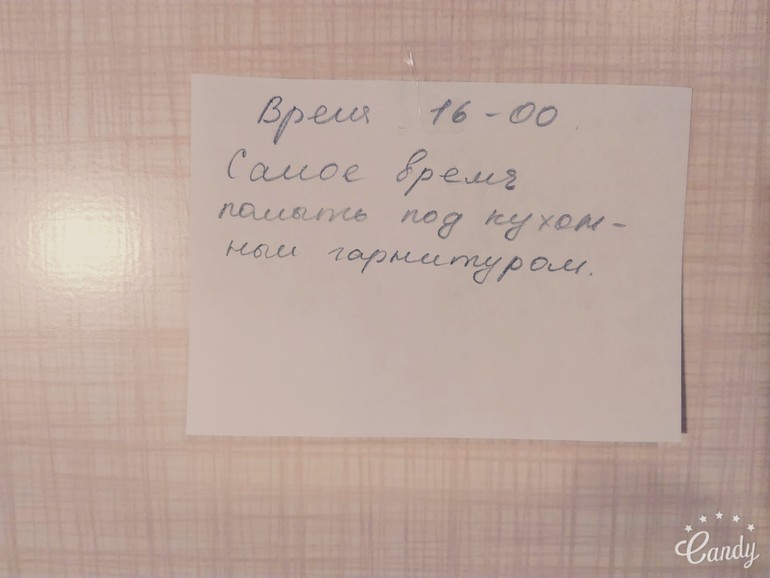 Время 16-00
Самое время
помыть под кухон-
ным гарнитуром.
Candy